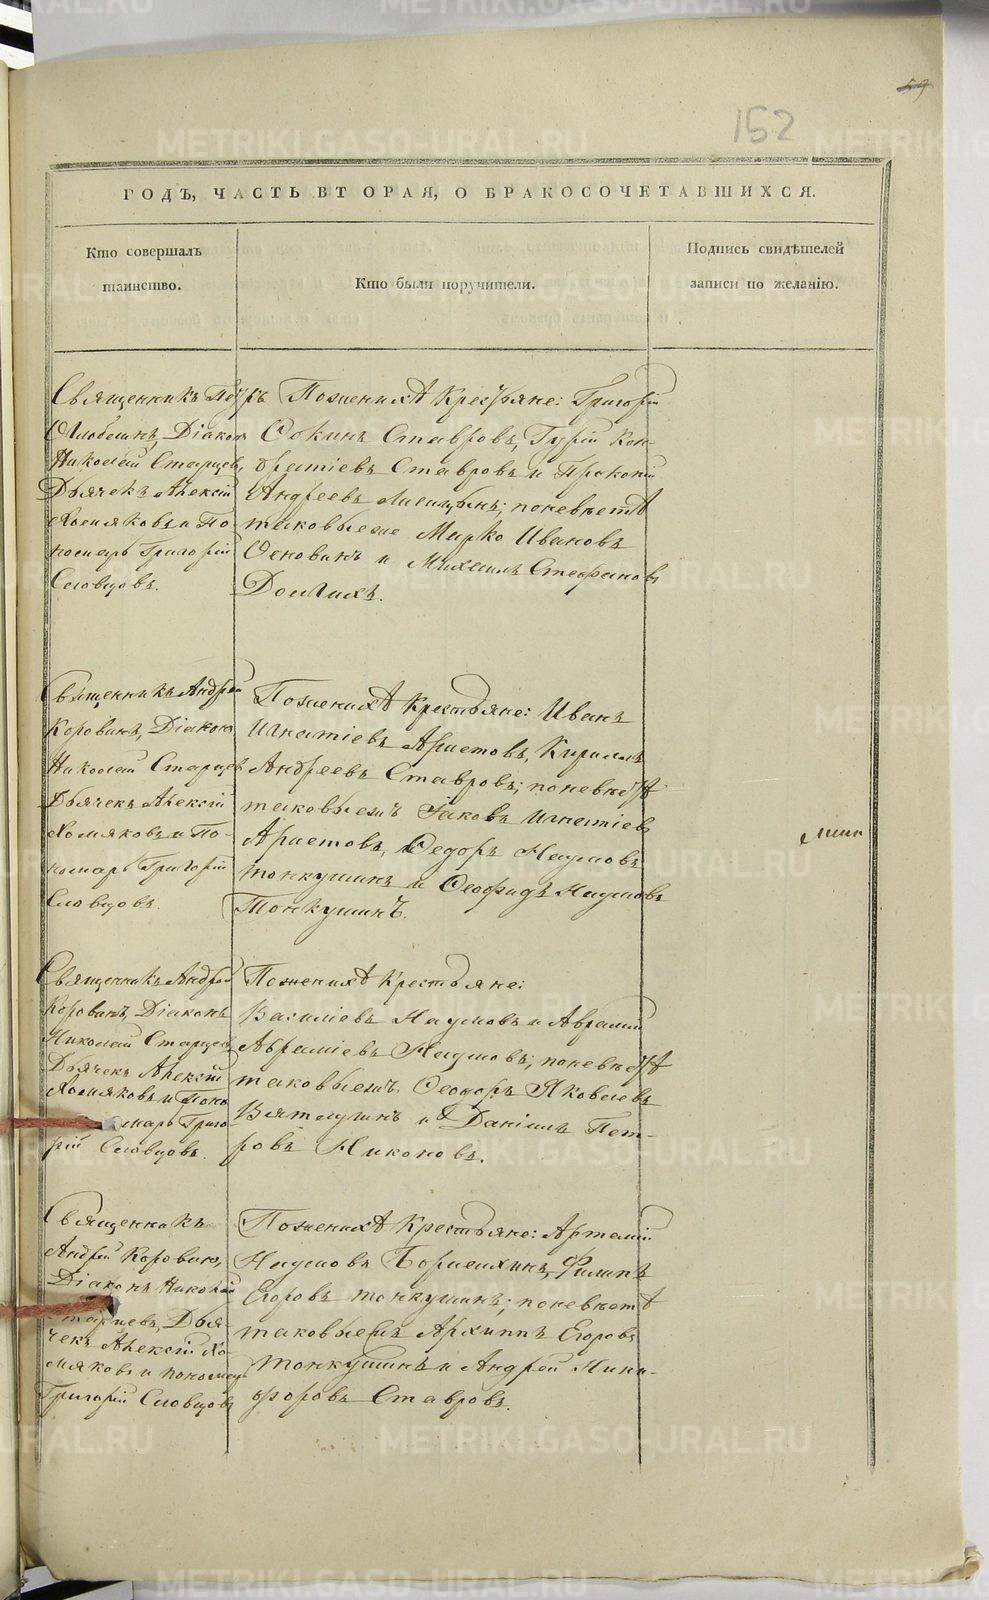 152
ГОДЪ, ЧАСТЬ ВТОРАЯ, О БРАКОСОЧЕТАВШИХСЯ.
Кто совершалъ
таинство.
Кто были поручители.
Подпись свидѣтелей
записи по желанію.
Священникъ Петръ
Діакон
Николай Старцев,
Дьячекъ Алексій
Хомяковъ и По-
номарь Григорій
Словцовъ.
По женихѣ Крестьяне: Григорій
Ставровъ, Гурій Кон-
дратіевъ Ставровъ и Прокопій
Андреевъ по невѣстѣ
таковые же Марко Ивановъ
Основинъ и Михаилъ Стефановъ
Долгихъ.
Священникъ Андрей
Коровинъ, Діаконъ
Николай Старцев
Дьячекъ Алексій
Хомяковъ и По-
номарь Григорій
Словцовъ.
По женихѣ Крестьяне: Иванъ
Игнатіевъ Аристовъ, Кириллъ
Андреевъ Ставровъ; по невѣстѣ
таковые жъ Іаковъ Игнатіевъ
Аристовъ, Ѳедоръ Наумовъ
Тонкушинъ и Наумовъ
Тонкушинъ.
Священникъ Андрей
Коровинъ, Діаконъ
Николай Старцев
Дьячекъ Алексій
Хомяковъ и Поно
марь Григо-
рій Словцовъ.
По женихѣ Крестьяне:
Василіевъ Наумовъ и Аврамій
Абраміевъ Наумовъ; по невѣстѣ
таковые жъ Ѳеодоръ Яковлевъ
Вяткушинъ и Даніилъ Пет-
ровъ Никоновъ.
Священникъ
Андрей Коровин,
Діаконъ Николай
Старцевъ, Дья-
чекъ Алексій Хо-
мяковъ и пономарь
Григорій Словцовъ
По женихѣ Крестьяне: Артемій
Наумовъ Филипъ
Егоровъ Тонкушинъ; по невѣстѣ
таковые жъ Архиппъ Егоровъ
Тонкушинъ и Андрей Ники-
форовъ Ставровъ.